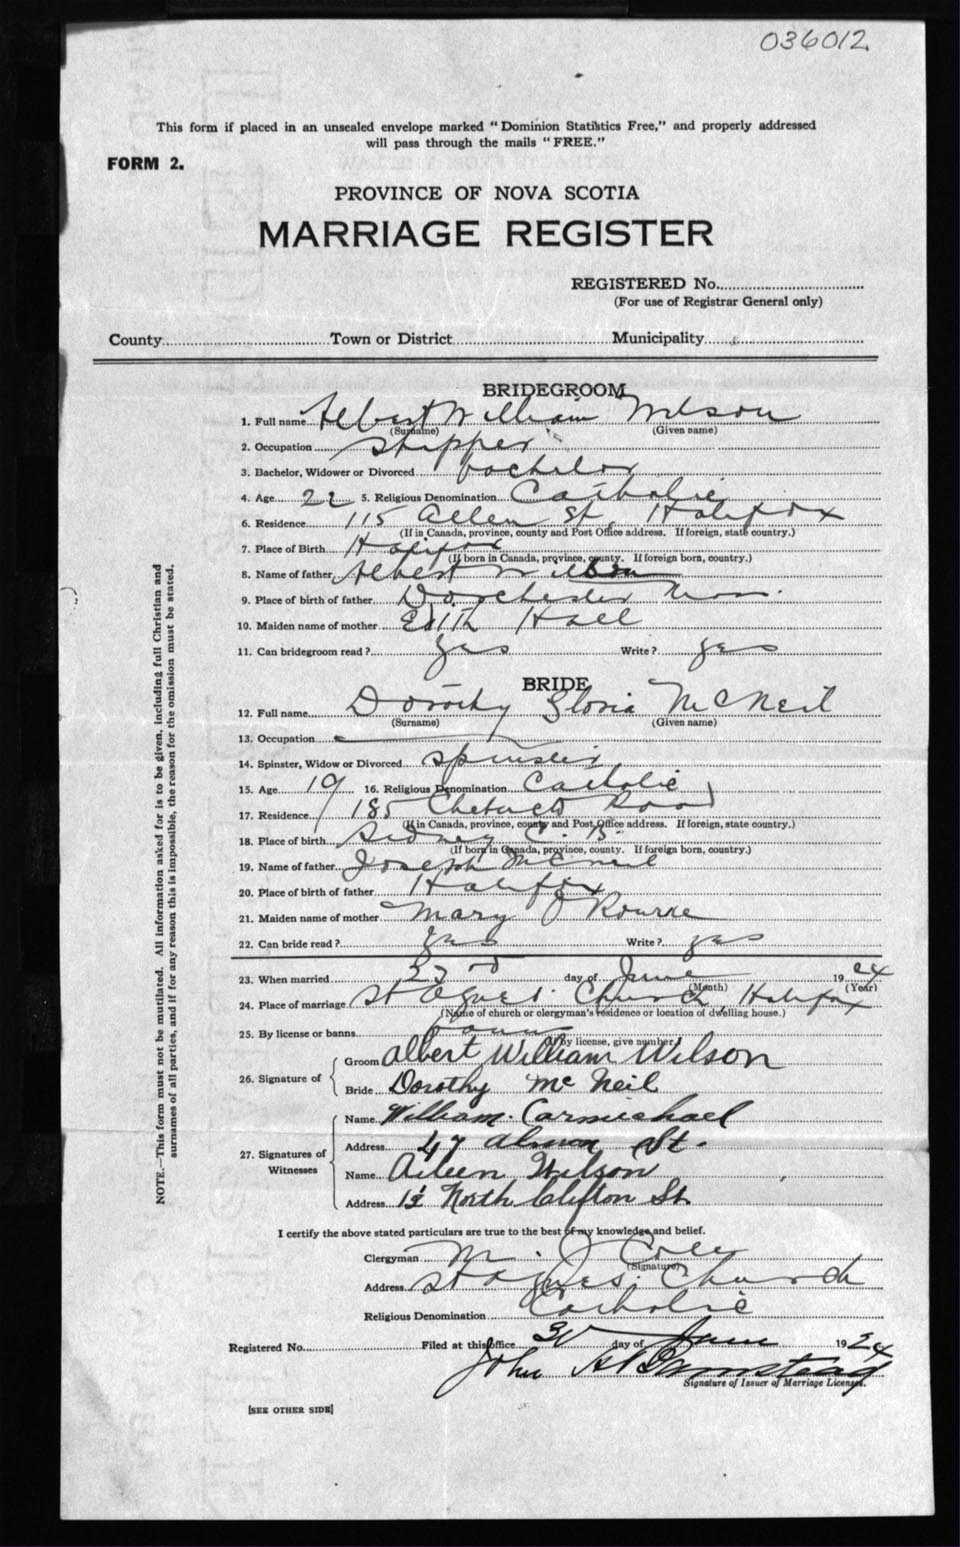 036012
This form if placed in an unsealed envelope marked "Dominion Statistics Free," and properly addressed
will pass through the mails "FREE."
FORM 2.
PROVINCE OF NOVA SCOTIA
MARRIAGE REGISTER
REGISTERED No.
(For use of Registrar General only)
County Town or District Municipality
BRIDEGROOM
1. Full name Albert William Wilson
(Surname) (Given name)
2. Occupation Shipper
3. Bachelor, Widower or Divorced bachelor
4. Age 22 5. Religious Denomination Catholic
6. Residence 115 Allen St. Halifax
(If in Canada, province, county and Post Office address. If foreign, state country.)
7. Place of Birth Halifax
(If born in Canada, province, county. If foreign born, country.)
8. Name of father Albert Wilson
9. Place of birth of father Dorchester Mass.
10. Maiden name of mother Edith Hall
11. Can bridegroom read? yes Write? yes
BRIDE
12. Full name Dorothy Gloria McNeil
(Surname) (Given name)
13. Occupation
14. Spinster, Widow or Divorced Spinster
15. Age 19 16. Religious Denomination Catholic
17. Residence 185 Chebucto Road
(If in Canada, province, county and Post Office address. If foreign, state country.)
18. Place of birth Sidney C. B.
(If born in Canada, province, county. If foreign born, country.)
19. Name of father Joseph McNeil
20. Place of birth of father Halifax
21. Maiden name of mother Mary O'Rourke
22. Can bride read? yes Write? yes
23. When married 23rd day of June 1924
(Month) (Year)
24. Place of marriage St Agnes. Church, Halifax
(Name of church or clergyman's residence or location of dwelling house.)
25. By license or banns banns
(If by license, give number.)
26. Signature of
Groom Albert William Wilson
Bride Dorothy McNeil
27. Signatures of Witnesses
Name William Carmichael
Address 47 Almon St.
Name Aileen Wilson
Address North Clifton St.
I certify the above stated particulars are true to the best of my knowledge and belief.
Clergyman M. J. Cole
(Signature)
Address St Agnes. Church
Religious Denomination Catholic
Registered No. Filed at this office 30 day of June 1924
John
Signature of Issuer of Marriage Licenses.
[SEE OTHER SIDE]
NOTE.—This form must not be mutilated. All information asked for is to be given, including full Christian and
surnames of all parties, and if for any reason this is impossible, the reason for the omission must be stated.